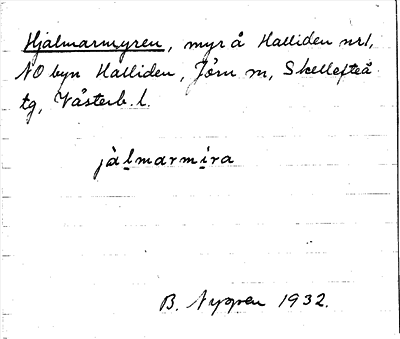 Hjalmarmyren, myr å Halliden nr 1,
NO byn Halliden, Jörn m, Skellefteå
tg, Västerb. l.
jàlmarmira
B. Nygren 1932.